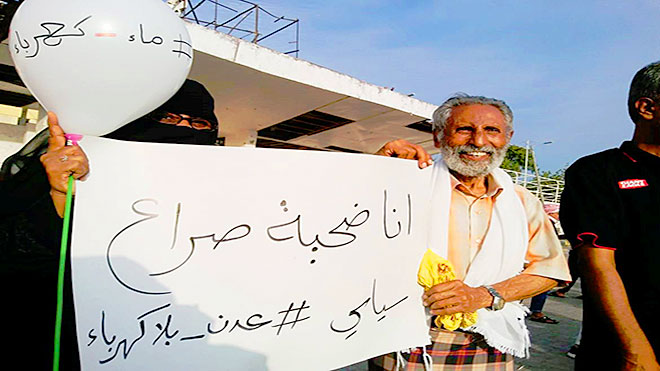 #ماء - كهرباء
انا ضحية صراع
سياسي #عدن_بلا كهرباء